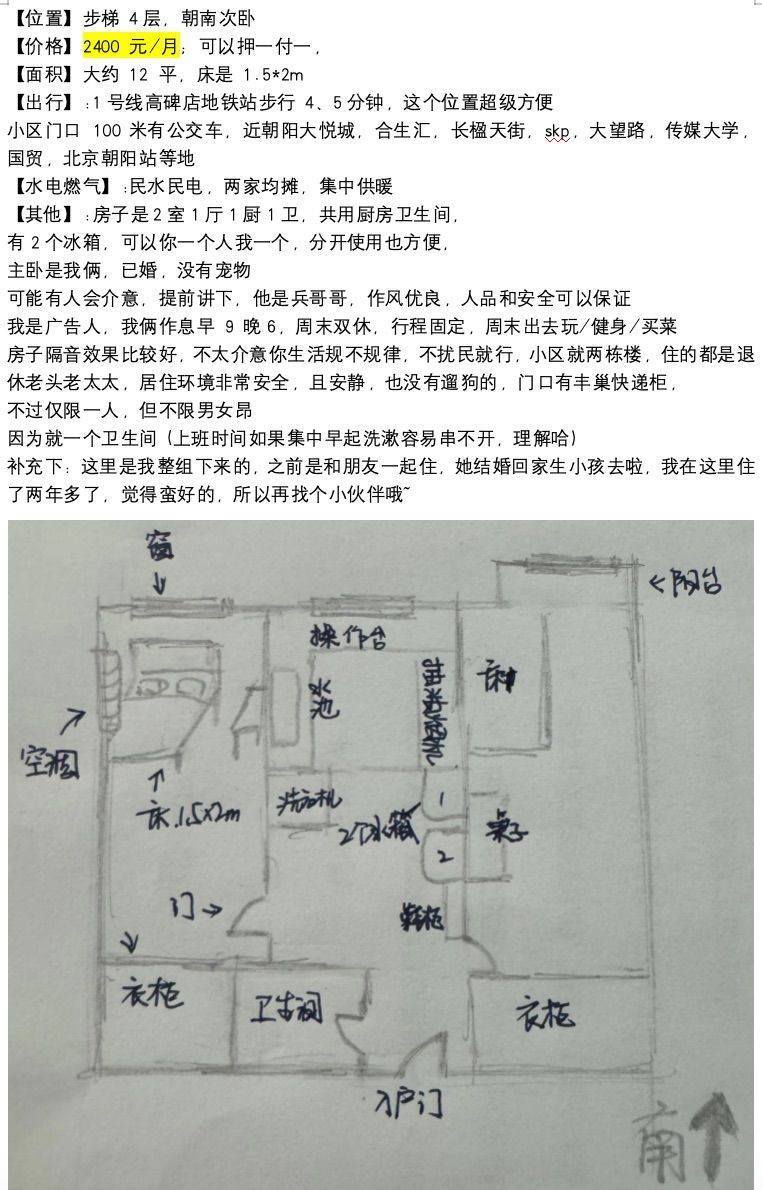 【位置】步梯 4 层，朝南次卧
【价格】2400 元/月；可以押一付一，
【面积】大约 12 平，床是 1.5*2m
【出行】:1 号线高碑店地铁站步行 4、5分钟，这个位置超级方便
小区门口 100 米有公交车，近朝阳大悦城，合生汇，长楹天街，skp，大望路，传媒大学，
国贸，北京朝阳站等地
【水电燃气】:民水民电，两家均摊，集中供暖
【其他】:房子是2室1厅1厨1卫，共用厨房卫生间，
有2个冰箱，可以你一个人我一个，分开使用也方便，
主卧是我俩，已婚，没有宠物
可能有人会介意，提前讲下，他是兵哥哥，作风优良，人品和安全可以保证
我是广告人，我俩作息早 9 晚6，周末双休，行程固定，周末出去玩/健身/买菜
房子隔音效果比较好，不太介意你生活规不规律，不扰民就行，小区就两栋楼，住的都是退
休老头老太太，居住环境非常安全，且安静，也没有遛狗的，门口有丰巢快递柜，
不过仅限一人，但不限男女昂
因为就一个卫生间（上班时间如果集中早起洗漱容易串不开，理解哈）
补充下：这里是我整组下来的，之前是和朋友一起住，她结婚回家生小孩去啦，我在这里住
了两年多了，觉得蛮好的，所以再找个小伙伴哦~
窗
阳台
操作台
水池
抽油烟机
床
空调
床.1.5×2m
洗衣机
2个冰箱
1
2
桌子
门
鞋柜
衣柜
卫生间
衣柜
入户门
南